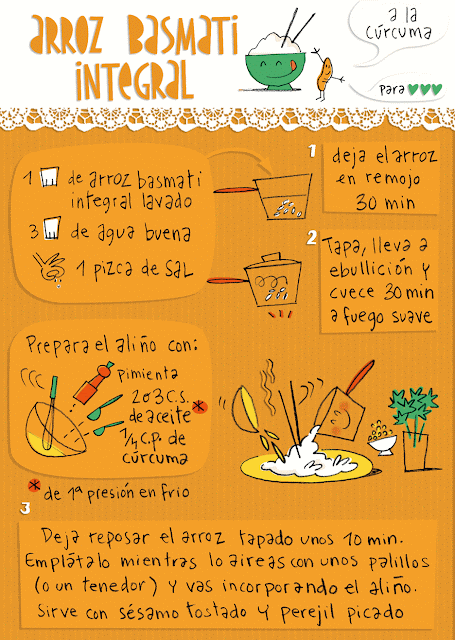 arroz basmati
integral
a la
cúrcuma
para
1 de arroz basmati
integral lavado
3 de agua buena
1 pizca de sal
1
deja el arroz
en remojo
30 min
2
Tapa, lleva a
ebullición y
cuece 30 min
a fuego suave
Prepara el aliño con:
pimienta
2 o 3 c.s.
de aceite *
1/4 c.p. de
cúrcuma
* de 1ª presión en frio
3
Deja reposar el arroz tapado unos 10 min.
Emplátalo mientras lo aireas con unos palillos
(o un tenedor) y vas incorporando el aliño.
Sirve con sésamo tostado y perejil picado